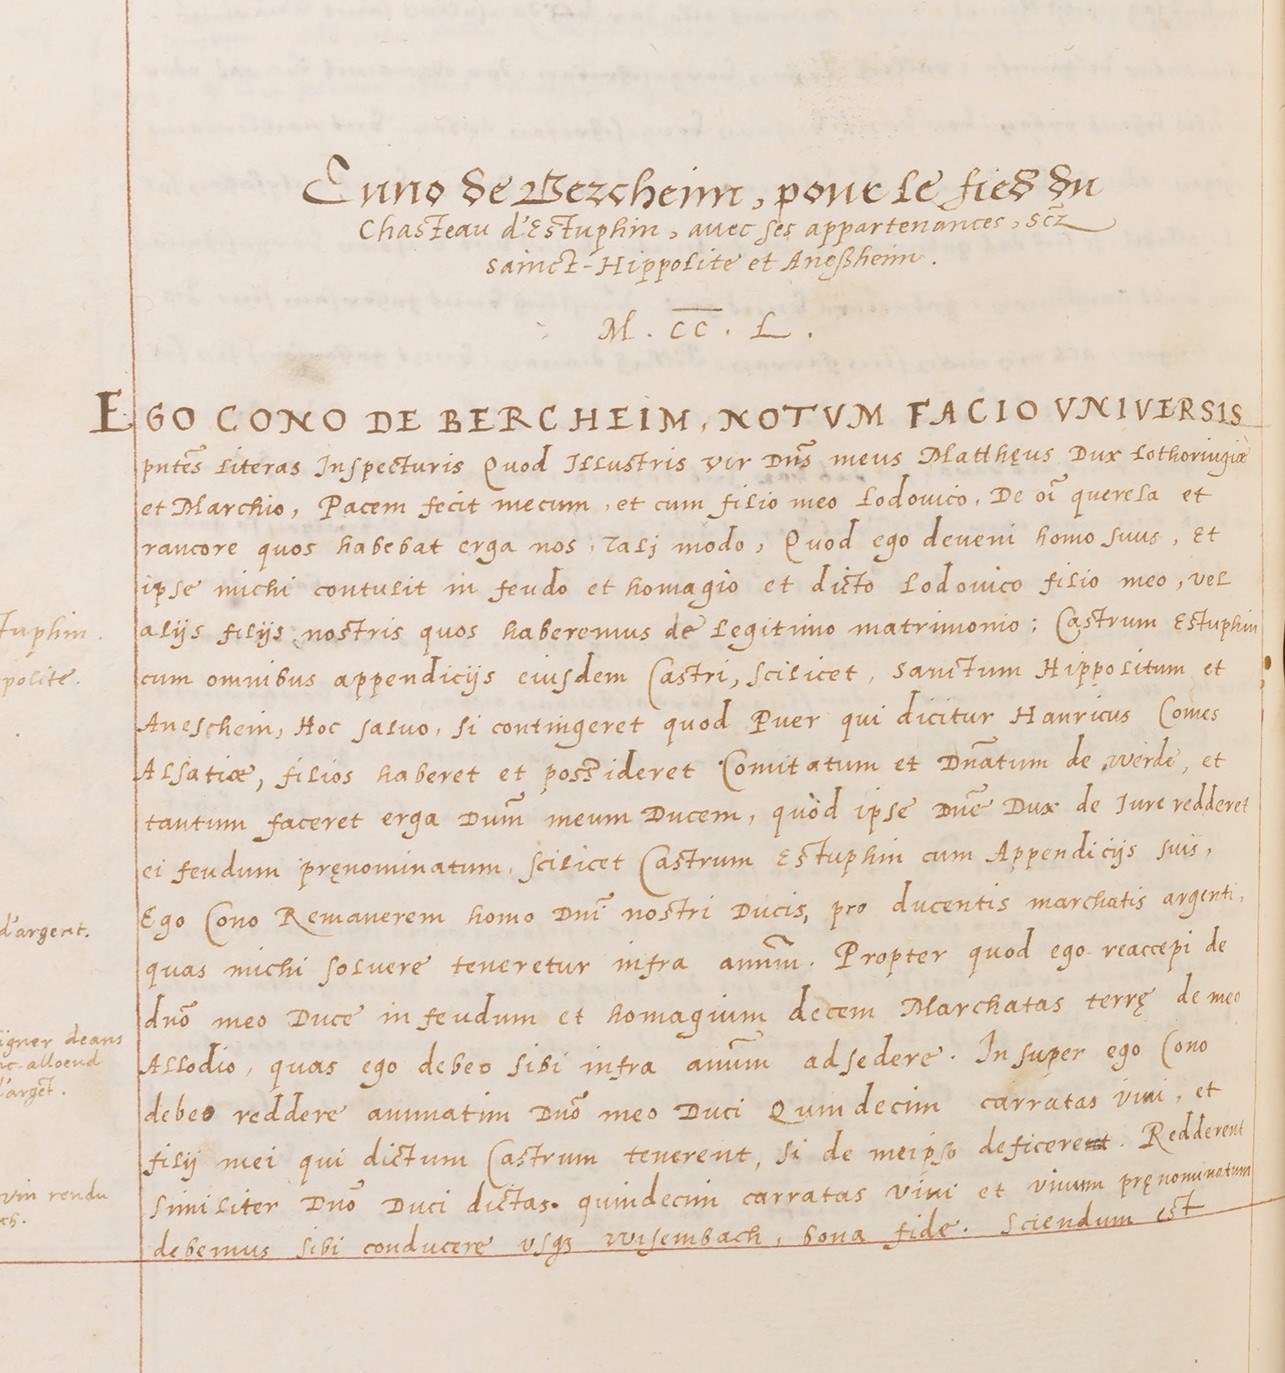 Cuno de Bercheim, pour le fied du
Chasteau d'Estuphin, avec ses appartenances, scz
sainct-Hippolite et Aneßheim.
M. CC. L.
EGO CONO DE BERCHEIM, NOTVM FACIO VNIVERSIS
pntēs literas Inspecturis Quod Illustris vir Dns̄ meus Matthęus Dux Lothoringiæ
et Marchio, Pacem fecit mecum, et cum filio meo Lodovico, De oī querela et
rancore quos habebat erga nos, Talj modo, Quod ego deveni homo suus, Et
ipse michi contulit in feudo et homagio et dicto Lodovico filio meo, vel
tuphin.
alijs filijs nostris quos haberemus de legitimo matrimonio: Castrum Estuphin
polite.
cum omnibus appendicijs eiusdem Castri, scilicet, sanctum Hippolitum et
Aneschein, Hoc salvo, si contingeret quod Puer qui dicitur Hanricus Comes
Alsatiæ, filios haberet et possideret Comitatum et Dnātum de werde, et
tantum faceret erga Dum̄ meum Ducem, quod ipse Dnē Dux de Iure redderet
ei feudum pręnominatum, scilicet Castrum Estuphin cum Appendicijs suis,
d'argent.
Ego Cono Remanerem homo Dnī nostri Ducis, pro ducentis marchatis argenti,
quas michi solvere teneretur infra annum̄. Propter quod ego reaccepi de
dnō meo Duce in feudum et homagium decem Marchatas terrę de meo
igner deans
Allodio, quas ego debeo sibi infra annum̄ adsedere. Insuper ego Cono
alloend
d'arget̄.
debeo reddere annuatim Dnō meo Duci Quindecim carratas vini, et
filij mei qui dictum Castrum tenerent, si de meipso deficerent. Redderent
vin rendu
similiter Dnō Duci dictas quindecim carratas vini et vinum pręnominatum
ch.
debemus sibi conducere usqȝ wisembach, bona fide. Sciendum est